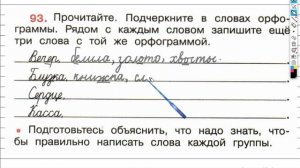 93. Прочитайте. Подчеркните в словах орфо-
граммы. Рядом с каждым словом запишите ещё
три слова с той же орфограммой.
Ветер, белила, золото, хвосты.
Блузка, книжка, сл
Сердце,
Касса,
• Подготовьтесь объяснить, что надо знать, что-
бы правильно написать слова каждой группы.